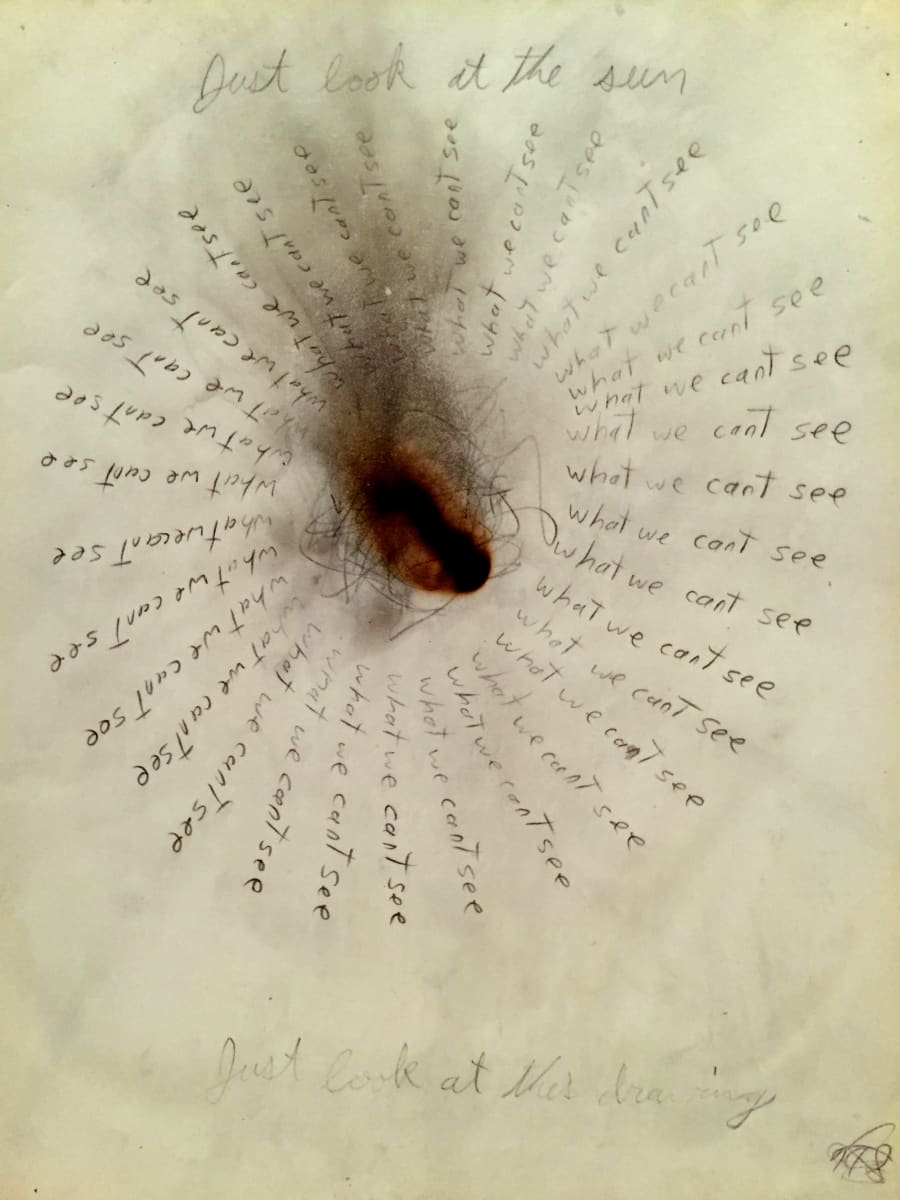 Just look at the sun
what we cant see
what we cant see
what we cant see
what we cant see
what we cant see
what we cant see
what we cant see
what we cant see
what we cant see
what we cant see
what we cant see
what we cant see
what we cant see
what we cant see
what we cant see
what we cant see
what we cant see
what we cant see
what we cant see
what we cant see
what we cant see
what we cant see
what we cant see
what we cant see
what we cant see
what we cant see
what we cant see
what we cant see
what we cant see
what we cant see
what we cant see
what we cant see
what we cant see
Just look at this drawing